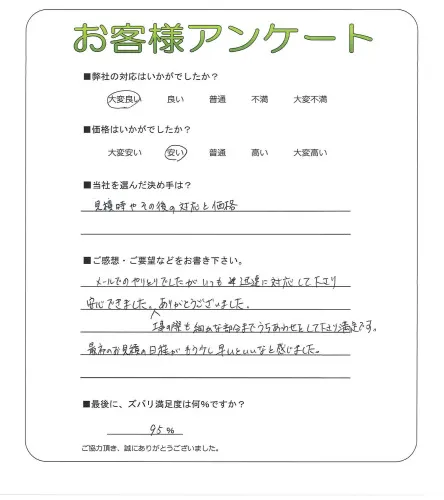 お客様アンケート
■弊社の対応はいかがでしたか？
大変良い 良い 普通 不満 大変不満
■価格はいかがでしたか？
大変安い 安い 普通 高い 大変高い
■当社を選んだ決め手は？
見積時やその後の対応と価格
■ご感想・ご要望などをお書き下さい。
メールでのやりとりでしたがいつも迅速に対応して下さり
安心できました。ありがとうございました。
工事の際も細かな部分までうちあわせをして下さり満足です。
最初のお見積の日程がもう少し早いといいなと感じました。
■最後に、ズバリ満足度は何％ですか？
95%
ご協力頂き、誠にありがとうございました。